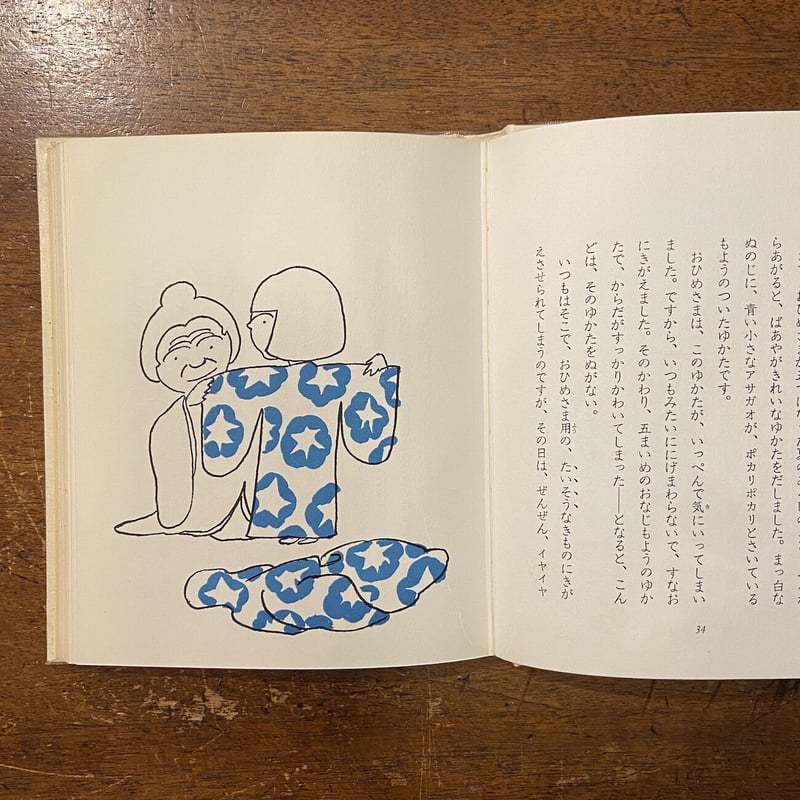 らあがると、ばあやがきれいなゆかたをだしました。まっ白な
ぬのじに、青い小さなアサガオが、ポカリポカリとさいている
もようのついたゆかたです。
おひめさまは、このゆかたが、いっぺんで気にいってしまい
ました。ですから、いつもみたいににげまわらないで、すなお
にきがえました。そのかわり、五まいめのおなじもようのゆか
たで、からだがすっかりかわいてしまった──となると、こん
どは、そのゆかたをぬがない。
いつもはそこで、おひめさま用の、たいそうなきものにきが
えさせられてしまうのですが、その日は、ぜんぜん、イヤイヤ
34